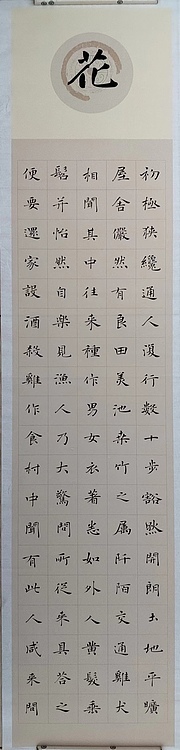 花
初極狹纔通人復行數十步豁然開朗土地平曠
屋舍儼然有良田美池桑竹之屬阡陌交通雞犬
相聞其中往來種作男女衣著悉如外人黃髮垂
髫并怡然自樂見漁人乃大驚問所從來具答之
便要還家設酒殺雞作食村中聞有此人咸來問